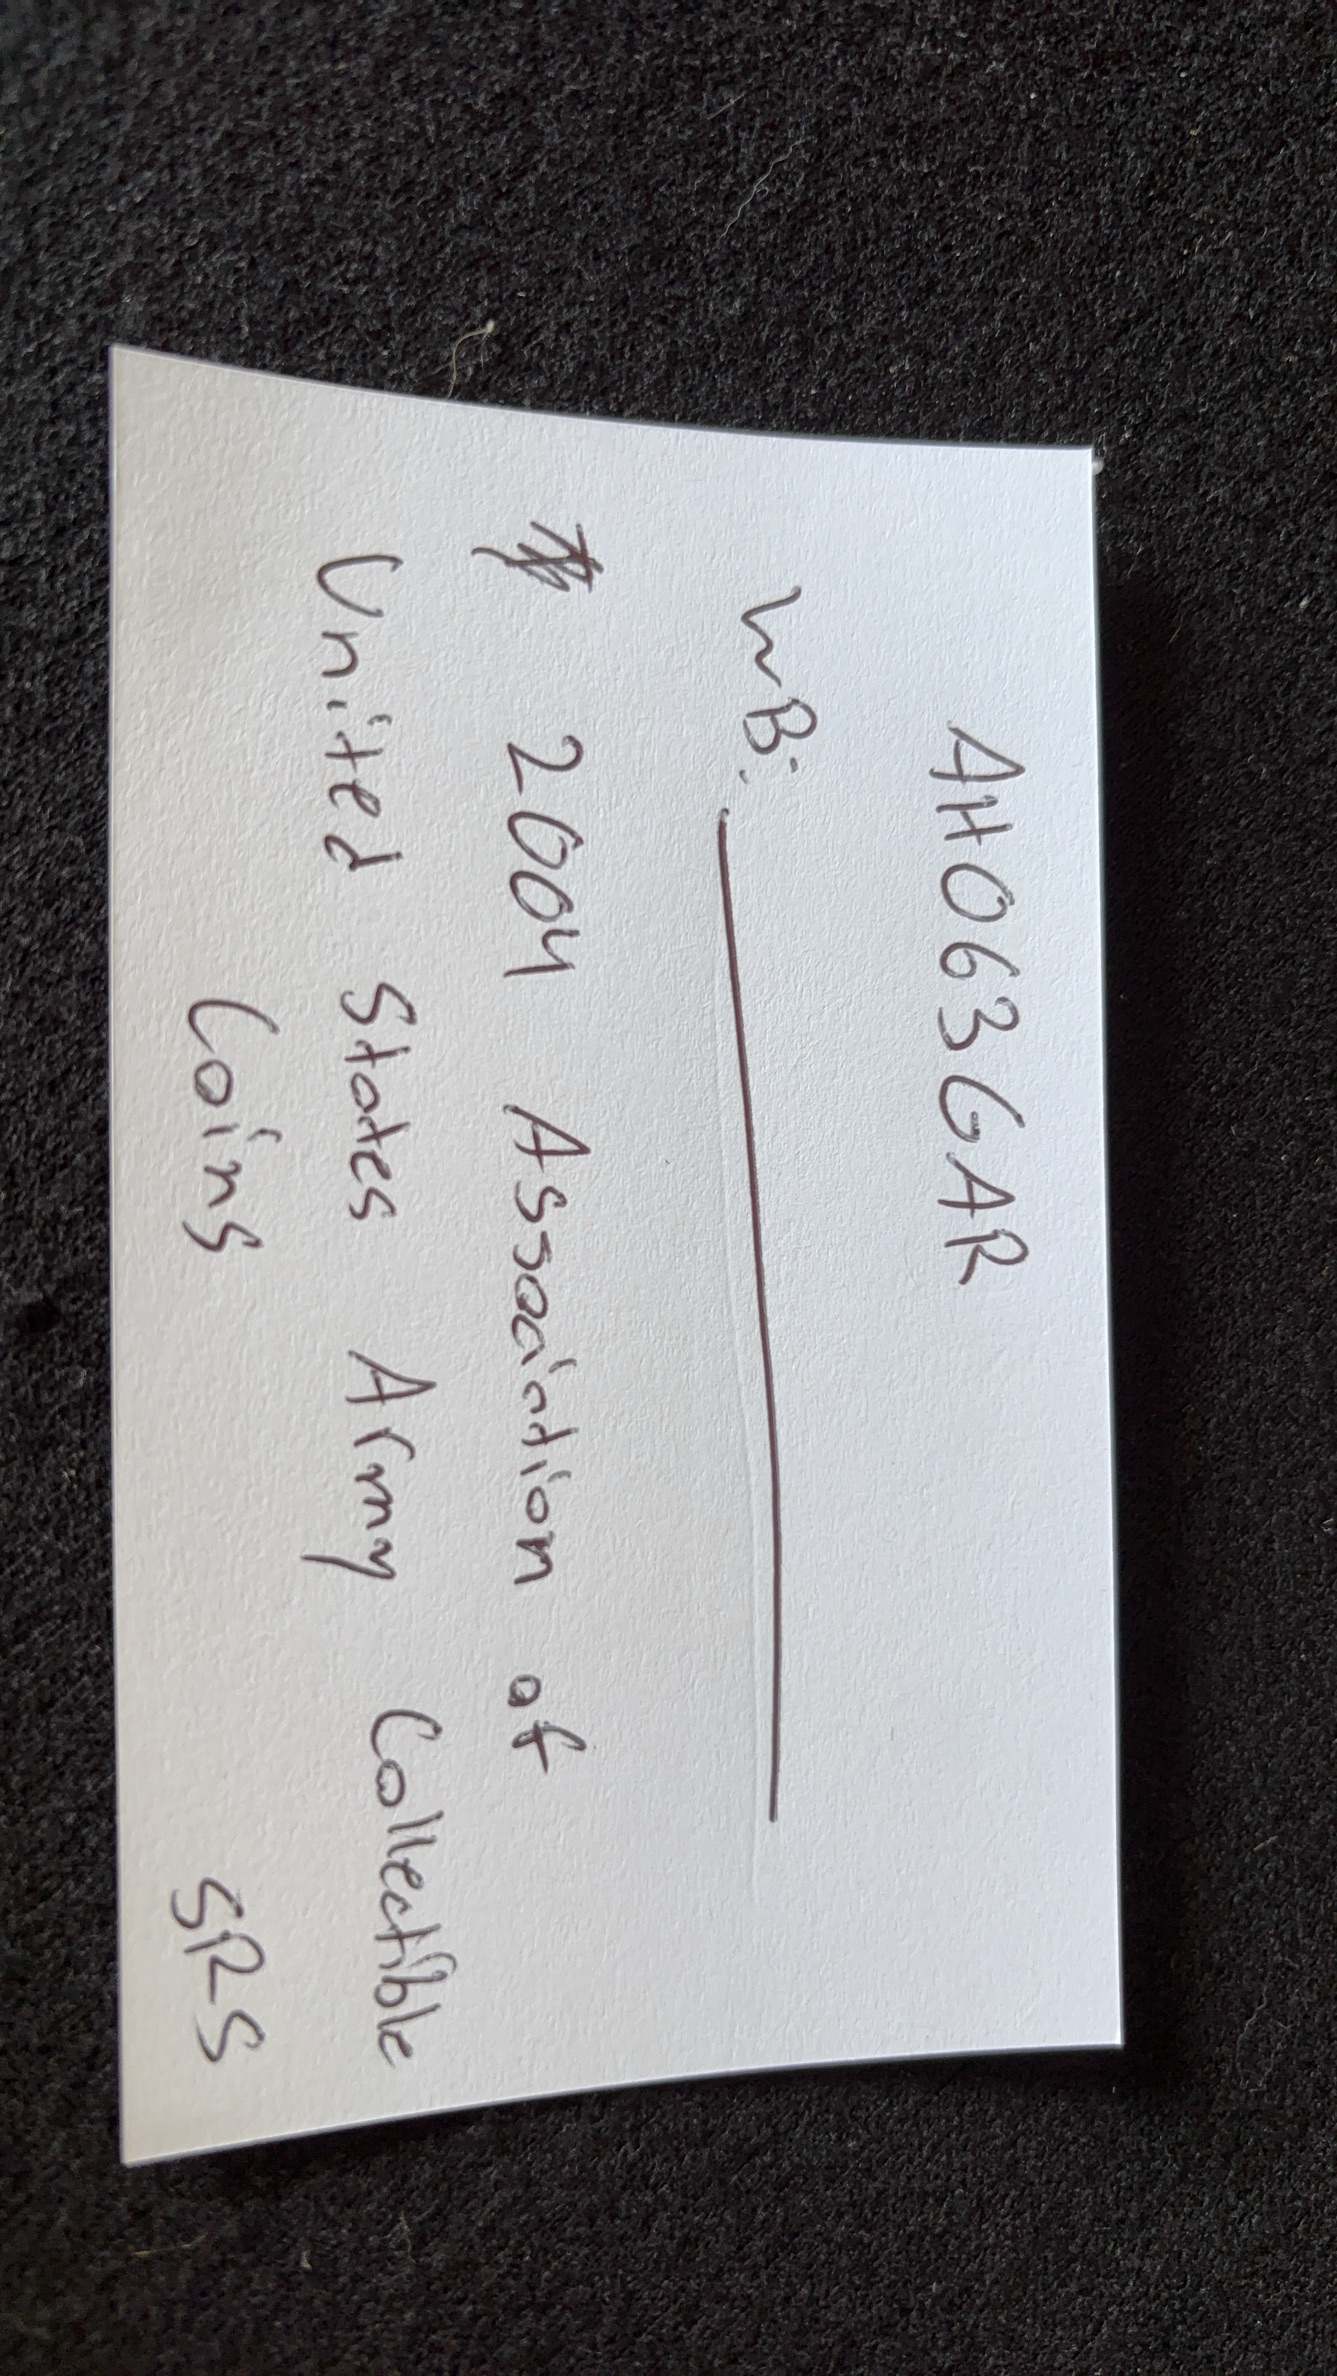 AH063GAR
WB:
2004 Association of
United States Army Collectible
Coins SRS